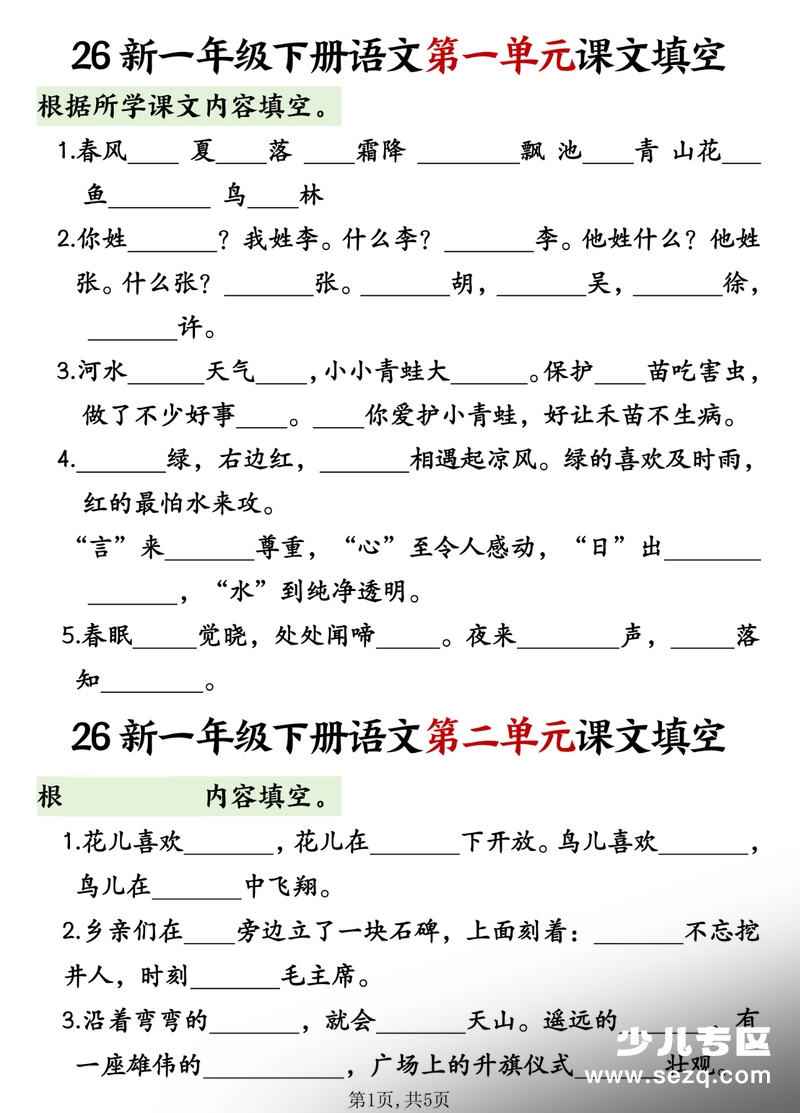 26新一年级下册语文第一单元课文填空
根据所学课文内容填空。
1.春风____ 夏____落 ____霜降 ________飘 池____青 山花___
鱼________ 鸟____林
2.你姓_______？我姓李。什么李？_______李。他姓什么？他姓
张。什么张？_______张。_______胡，_______吴，_______徐，
_______许。
3.河水______天气____，小小青蛙大______。保护____苗吃害虫，
做了不少好事____。____你爱护小青蛙，好让禾苗不生病。
4._______绿，右边红，_______相遇起凉风。绿的喜欢及时雨，
红的最怕水来攻。
“言”来_______尊重，“心”至令人感动，“日”出_______
_______，“水”到纯净透明。
5.春眠_____觉晓，处处闻啼_____。夜来________声，_____落
知________。
26新一年级下册语文第二单元课文填空
根 内容填空。
1.花儿喜欢_______，花儿在_______下开放。鸟儿喜欢_______，
鸟儿在_______中飞翔。
2.乡亲们在____旁边立了一块石碑，上面刻着：_______不忘挖
井人，时刻_______毛主席。
3.沿着弯弯的_______，就会_______天山。遥远的_______，有
一座雄伟的___________，广场上的升旗仪式_______壮观。
少儿专区
www.sezq.com
第1页,共5页